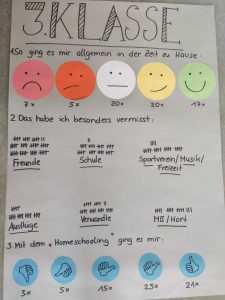 3. KLASSE
1. So ging es mir allgemein in der Zeit zu Hause:
7x 5x 20x 20x 17x
2. Das habe ich besonders vermisst:
Freunde Schule Sportverein/Musik/
Freizeit
Ausflüge Verwandte MB/Hort
3. Mit dem „Homeschooling" ging es mir:
3x 5x 15x 25x 21x